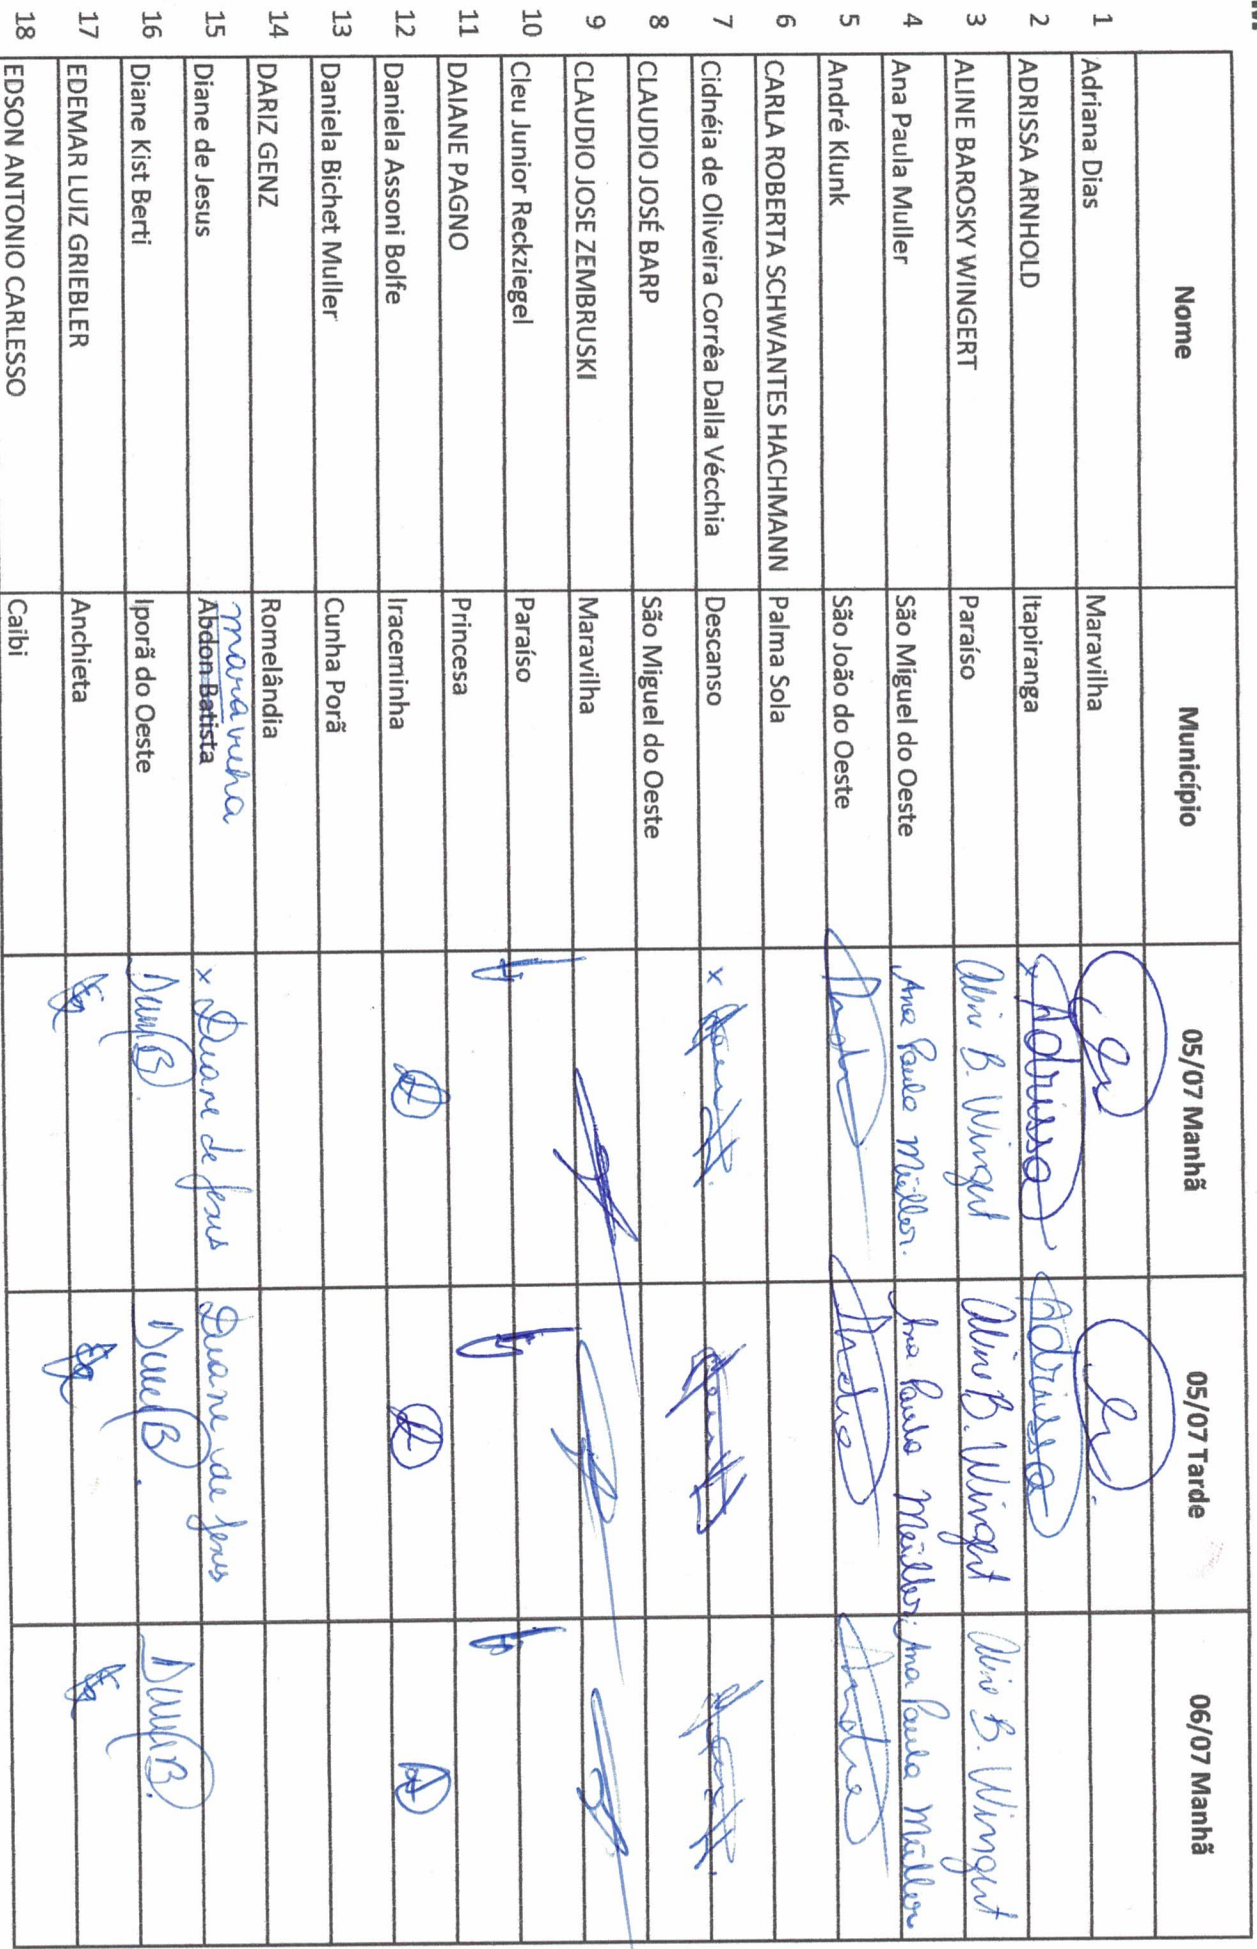 Nome Município 05/07 Manhã 05/07 Tarde 06/07 Manhã
1 Adriana Dias Maravilha
2 ADRISSA ARNHOLD Itapiranga x Adrissa Adrissa
3 ALINE BAROSKY WINGERT Paraíso Aline B. Wingert Aline B. Wingert Aline B. Wingert
4 Ana Paula Muller São Miguel do Oeste Ana Paula Müller. Ana Paula Müller Ana Paula Müller
5 André Klunk São João do Oeste André André André
6 CARLA ROBERTA SCHWANTES HACHMANN Palma Sola
7 Cidnéia de Oliveira Corrêa Dalla Vécchia Descanso x
8 CLAUDIO JOSÉ BARP São Miguel do Oeste
9 CLAUDIO JOSE ZEMBRUSKI Maravilha
10 Cleu Junior Reckziegel Paraíso
11 DAIANE PAGNO Princesa
12 Daniela Assoni Bolfe Iraceminha
13 Daniela Bichet Muller Cunha Porã
14 DARIZ GENZ Romelândia
maravilha
15 Diane de Jesus Abdon Batista x Diane de Jesus Diane de Jesus
16 Diane Kist Berti Iporã do Oeste
17 EDEMAR LUIZ GRIEBLER Anchieta
18 EDSON ANTONIO CARLESSO Caibi